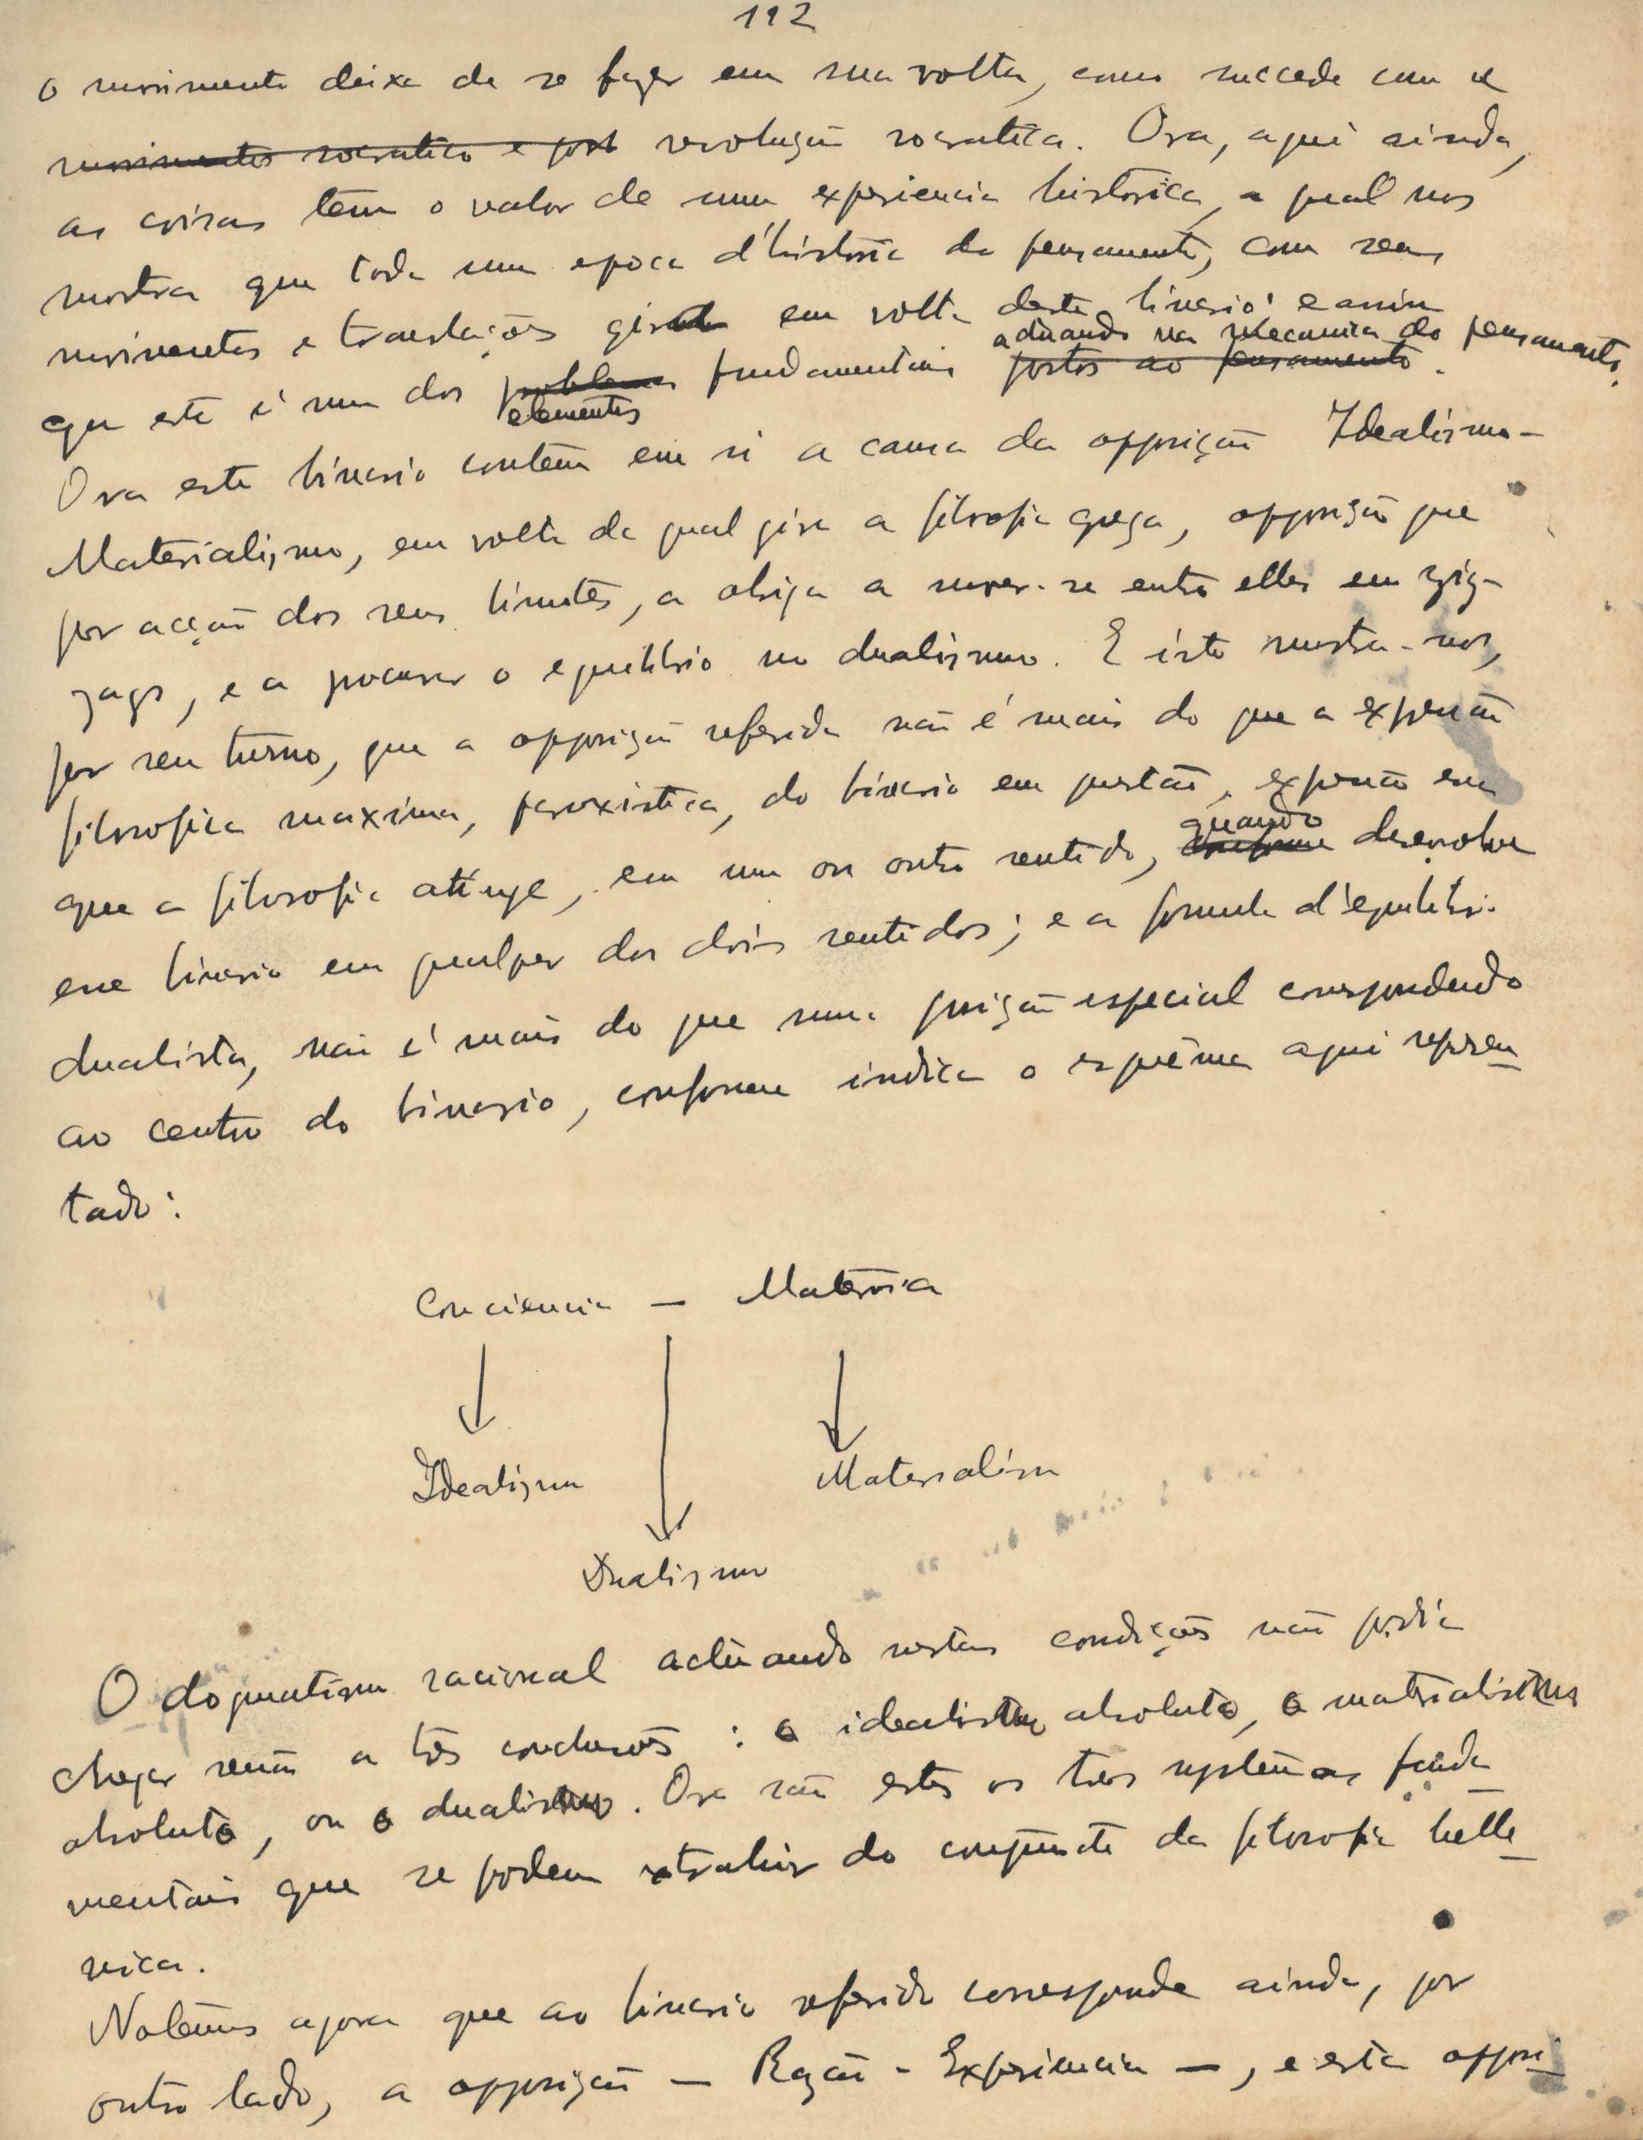 112
o movimento deixa de se fazer em sua volta, como succede com a
movimentos socratico e post revolução socratica. Ora, aqui ainda,
as coisas tem o valor de uma experiencia historica, a qual nos
mostra que toda uma epoca d'historia do pensamento, com seus
movimentos e translações gira em volta deste binario; e assim
actuando na mecanica do pensamento.
que este é um dos problemas fundamentais postos ao pensamento.
elementos
Ora este binario contém em si a causa da opposição Idealismo-
Materialismo, em volta da qual gira a filosofia grega, opposição que
por acção dos seus limites, a obriga a mover-se entre elles em zig-
zags, e a procurar o equilibrio no dualismo. E isto mostra-nos,
por seu turno, que a opposição referida não é mais do que a expressão
filosofica maxima, paroxistica, do binario em questão, expressão em
quando
que a filosofia atinge, em um ou outro sentido, conforme desenvolve
esse binario em qualquer dos dois sentidos; e a formula d'equilibrio
dualista, não é mais do que uma posição especial correspondendo
ao centro do binario, conforme indica o esquêma aqui represen
tado:
Consciencia — Materia
Idealismo
Materialismo
Dualismo
O dogmatismo racional actuando nestas condições não podia
chegar senão a tres conclusões: o idealismo absoluto, o materialismo
absoluto, ou o dualismo. Ora são estes os tres systemas funda
mentais que se podem extrahir do conjuncto da filosofia helle
nica.
Notêmos agora que ao binario referido corresponde ainda, por
outro lado, a opposição — Razão - Experiencia —, e esta opposi